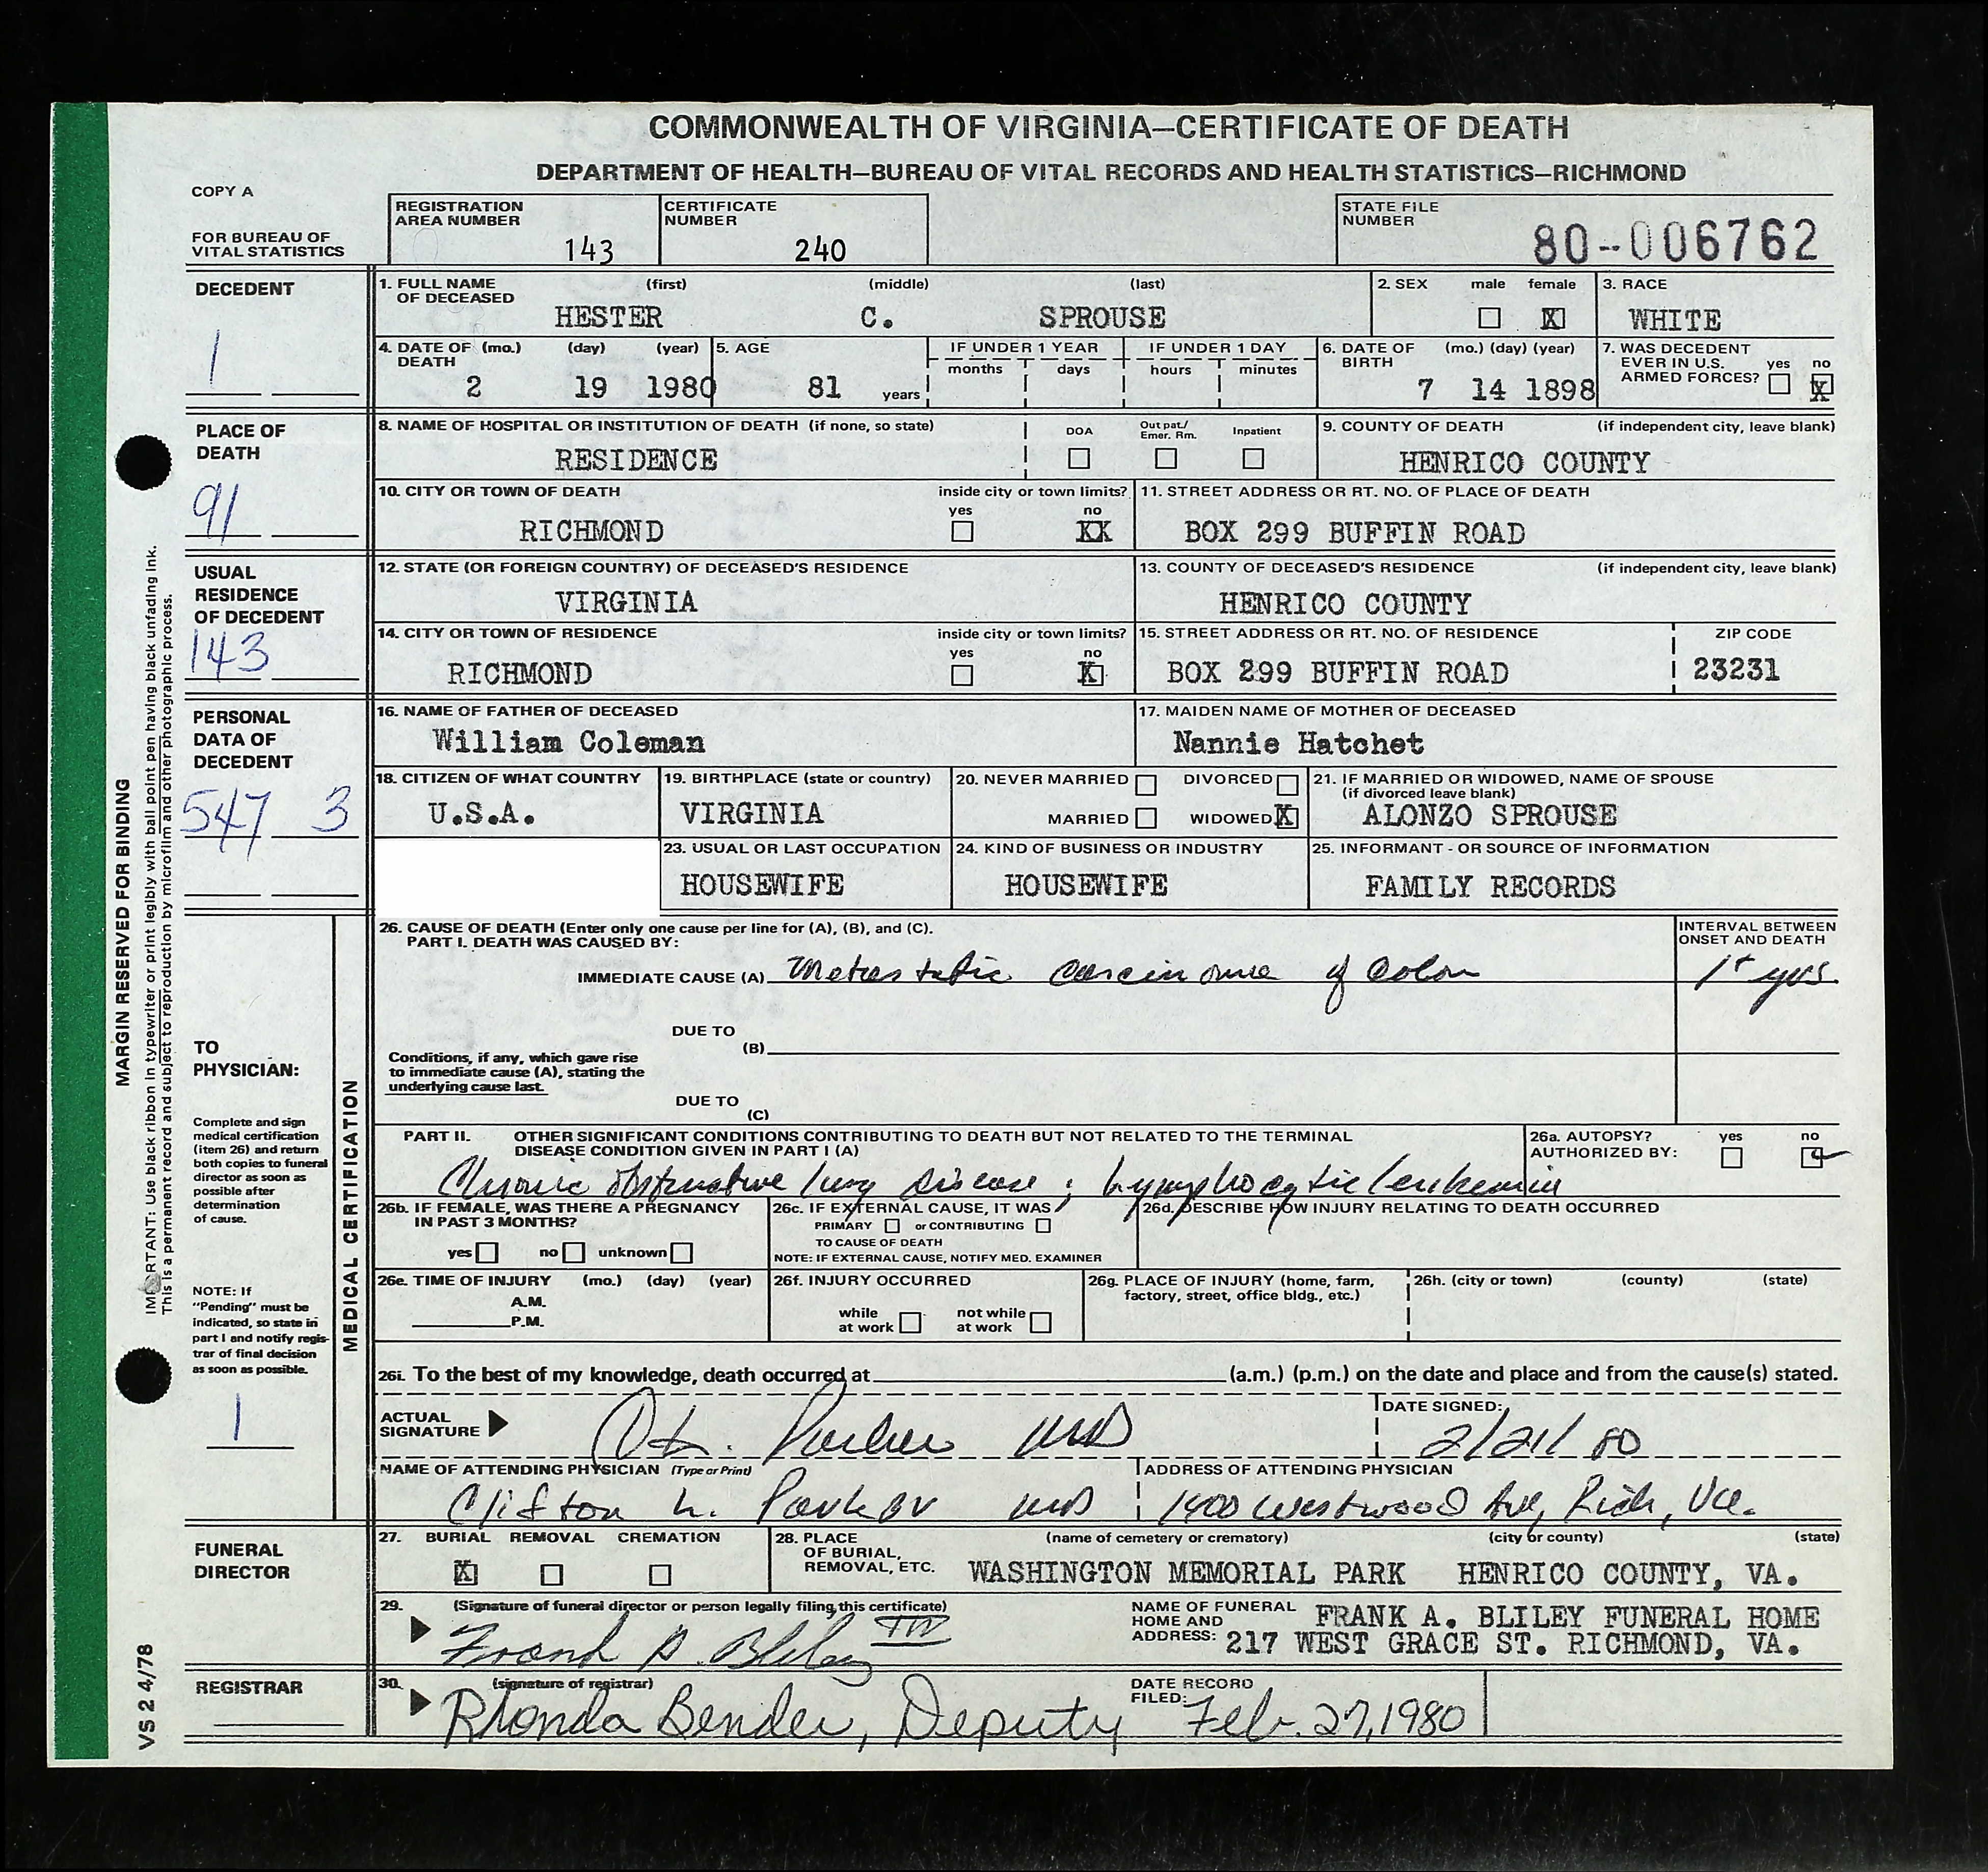 COMMONWEALTH OF VIRGINIA—CERTIFICATE OF DEATH
DEPARTMENT OF HEALTH—BUREAU OF VITAL RECORDS AND HEALTH STATISTICS—RICHMOND
COPY A
FOR BUREAU OF VITAL STATISTICS
REGISTRATION AREA NUMBER 143
CERTIFICATE NUMBER 240
STATE FILE NUMBER 80--006762
DECEDENT
1
1. FULL NAME OF DECEASED (first) (middle) (last)
HESTER C. SPROUSE
2. SEX male female X
3. RACE WHITE
4. DATE OF DEATH (mo.) (day) (year)
2 19 1980
5. AGE 81 years
IF UNDER 1 YEAR months days
IF UNDER 1 DAY hours minutes
6. DATE OF BIRTH (mo.) (day) (year)
7 14 1898
7. WAS DECEDENT EVER IN U.S. ARMED FORCES? yes no X
PLACE OF DEATH
91
8. NAME OF HOSPITAL OR INSTITUTION OF DEATH (if none, so state)
RESIDENCE
DOA Out pat./ Emer. Rm. Inpatient
9. COUNTY OF DEATH (if independent city, leave blank)
HENRICO COUNTY
10. CITY OR TOWN OF DEATH inside city or town limits? yes no
RICHMOND XX
11. STREET ADDRESS OR RT. NO. OF PLACE OF DEATH
BOX 299 BUFFIN ROAD
USUAL RESIDENCE OF DECEDENT
143
12. STATE (OR FOREIGN COUNTRY) OF DECEASED'S RESIDENCE
VIRGINIA
13. COUNTY OF DECEASED'S RESIDENCE (if independent city, leave blank)
HENRICO COUNTY
14. CITY OR TOWN OF RESIDENCE inside city or town limits? yes no
RICHMOND X
15. STREET ADDRESS OR RT. NO. OF RESIDENCE ZIP CODE
BOX 299 BUFFIN ROAD 23231
PERSONAL DATA OF DECEDENT
547 3
16. NAME OF FATHER OF DECEASED
William Coleman
17. MAIDEN NAME OF MOTHER OF DECEASED
Nannie Hatchet
18. CITIZEN OF WHAT COUNTRY
U.S.A.
19. BIRTHPLACE (state or country)
VIRGINIA
20. NEVER MARRIED DIVORCED
MARRIED WIDOWED X
21. IF MARRIED OR WIDOWED, NAME OF SPOUSE (if divorced leave blank)
ALONZO SPROUSE
23. USUAL OR LAST OCCUPATION
HOUSEWIFE
24. KIND OF BUSINESS OR INDUSTRY
HOUSEWIFE
25. INFORMANT - OR SOURCE OF INFORMATION
FAMILY RECORDS
MARGIN RESERVED FOR BINDING
IMPORTANT: Use black ribbon in typewriter or print legibly with ball point pen having black unfading ink.
This is a permanent record and subject to reproduction by microfilm and other photographic process.
VS 2 4/78
TO PHYSICIAN:
Complete and sign medical certification (item 26) and return both copies to funeral director as soon as possible after determination of cause.
NOTE: If "Pending" must be indicated, so state in part I and notify registrar of final decision as soon as possible.
1
MEDICAL CERTIFICATION
26. CAUSE OF DEATH (Enter only one cause per line for (A), (B), and (C).
PART I. DEATH WAS CAUSED BY:
INTERVAL BETWEEN ONSET AND DEATH
IMMEDIATE CAUSE (A) Metastatic carcinoma of colon 1+ yrs.
DUE TO (B)
Conditions, if any, which gave rise to immediate cause (A), stating the underlying cause last.
DUE TO (C)
PART II. OTHER SIGNIFICANT CONDITIONS CONTRIBUTING TO DEATH BUT NOT RELATED TO THE TERMINAL DISEASE CONDITION GIVEN IN PART I (A)
Chronic obstructive lung disease; Lymphocytic leukemia
26a. AUTOPSY? yes no
AUTHORIZED BY:
26b. IF FEMALE, WAS THERE A PREGNANCY IN PAST 3 MONTHS?
yes no unknown
26c. IF EXTERNAL CAUSE, IT WAS
PRIMARY or CONTRIBUTING
TO CAUSE OF DEATH
NOTE: IF EXTERNAL CAUSE, NOTIFY MED. EXAMINER
26d. DESCRIBE HOW INJURY RELATING TO DEATH OCCURRED
26e. TIME OF INJURY (mo.) (day) (year)
A.M.
P.M.
26f. INJURY OCCURRED
while at work not while at work
26g. PLACE OF INJURY (home, farm, factory, street, office bldg., etc.)
26h. (city or town) (county) (state)
26i. To the best of my knowledge, death occurred at (a.m.) (p.m.) on the date and place and from the cause(s) stated.
ACTUAL SIGNATURE Parker MD
DATE SIGNED: 2/21/80
NAME OF ATTENDING PHYSICIAN (Type or Print)
Clifton L. Parker MD
ADDRESS OF ATTENDING PHYSICIAN
1400 Westwood Ave, Rich, Va.
FUNERAL DIRECTOR
27. BURIAL REMOVAL CREMATION
X
28. PLACE OF BURIAL, REMOVAL, ETC. (name of cemetery or crematory) (city or county) (state)
WASHINGTON MEMORIAL PARK HENRICO COUNTY, VA.
29. (Signature of funeral director or person legally filing this certificate)
Frank A. Bliley III
NAME OF FUNERAL HOME AND ADDRESS: FRANK A. BLILEY FUNERAL HOME
217 WEST GRACE ST. RICHMOND, VA.
REGISTRAR
30. (signature of registrar)
Rhonda Bender, Deputy
DATE RECORD FILED: Feb. 27, 1980